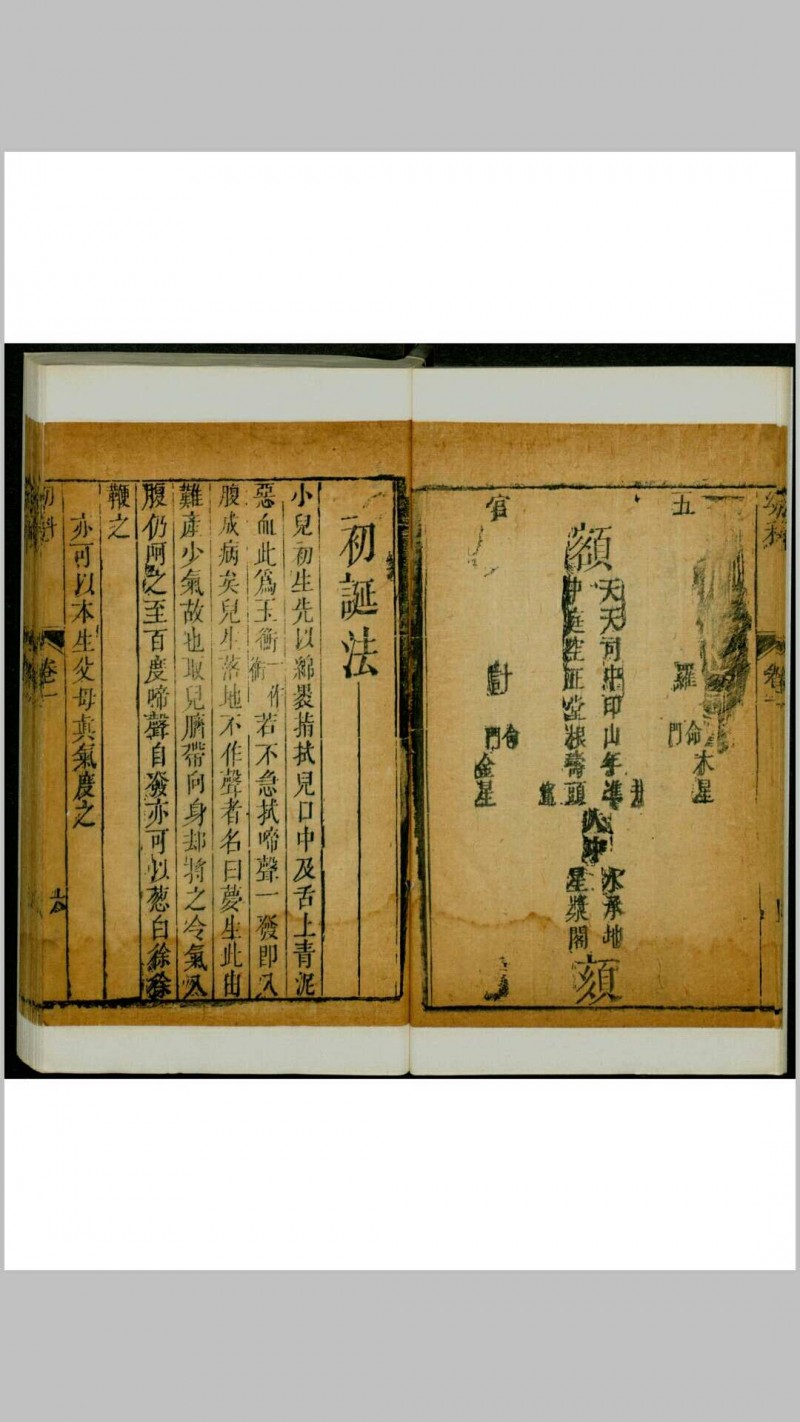 幼科
卷一
五
官
羅
命門
木星
額
天天司中印山年準
中庭空正堂根壽頭
水承地
星漿閣
頦
計
命門
金星
初誕法
小兒初生先以綿裹指拭兒口中及舌上青泥
惡血此爲玉衡一作衝若不急拭啼聲一發即入
腹成病矣兒生落地不作聲者名曰夢生此由
難產少氣故也取兒臍帶向身却捋之令氣入
腹仍呵之至百度啼聲自發亦可以葱白徐徐
鞭之
亦可以本生父母真氣度之
幼科
卷一
六